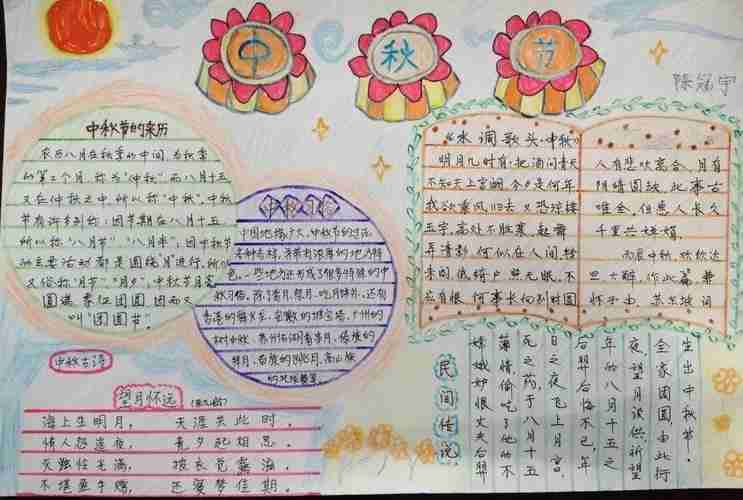 中 秋 节
陈冠宇
中秋节的来历
农历八月在秋季的中间,为秋季
的第二个月,称为“仲秋”而八月十五
又在仲秋之中,所以称“中秋”。中秋
节有许多别称:因节期在八月十五,
所以称“八月节”“八月半”;因中秋节
的主要活动都是围绕“月”进行,所以
又俗称“月节”“月夕”;中秋节月亮
圆满,象征团圆,因而又
叫“团圆节”。
中秋习俗
中国地缘广大,中秋节的习俗
各种各样,并带有浓厚的地方特
色。一些地方还形成了很多特殊的中
秋习俗。除了赏月、祭月、吃月饼外,还有
香港的舞火龙、安徽的堆宝塔、广州的
树中秋、苏州石湖看串月、傣族的
拜月、苗族的跳月、高山族的
《水调歌头·中秋》
明月几时有,把酒问青天
不知天上宫阙,今夕是何年
我欲乘风归去,又恐琼楼
玉宇,高处不胜寒,起舞
弄清影,何似在人间,转
朱阁,低绮户,照无眠,不
应有恨,何事长向别时圆
人有悲欢离合,月有
阴晴圆缺,此事古
难全,但愿人长久
千里共婵娟。
丙辰中秋,欢饮达
旦,大醉,作此篇,兼
怀子由。苏东坡词
中秋古诗
望月怀远
海上生明月, 天涯共此时。
情人怨遥夜, 竟夕起相思。
灭烛怜光满, 披衣觉露滋。
不堪盈手赠, 还寝梦佳期。
民间传说
生出中秋节。
全家团圆,由此衍
夜,望月谈供,祈望
年的八月十五之
后羿后悔不已,年
日之夜飞上月宫,
死之药,于八月十五
薄情,偷吃了他的不
嫦娥妒恨丈夫后羿